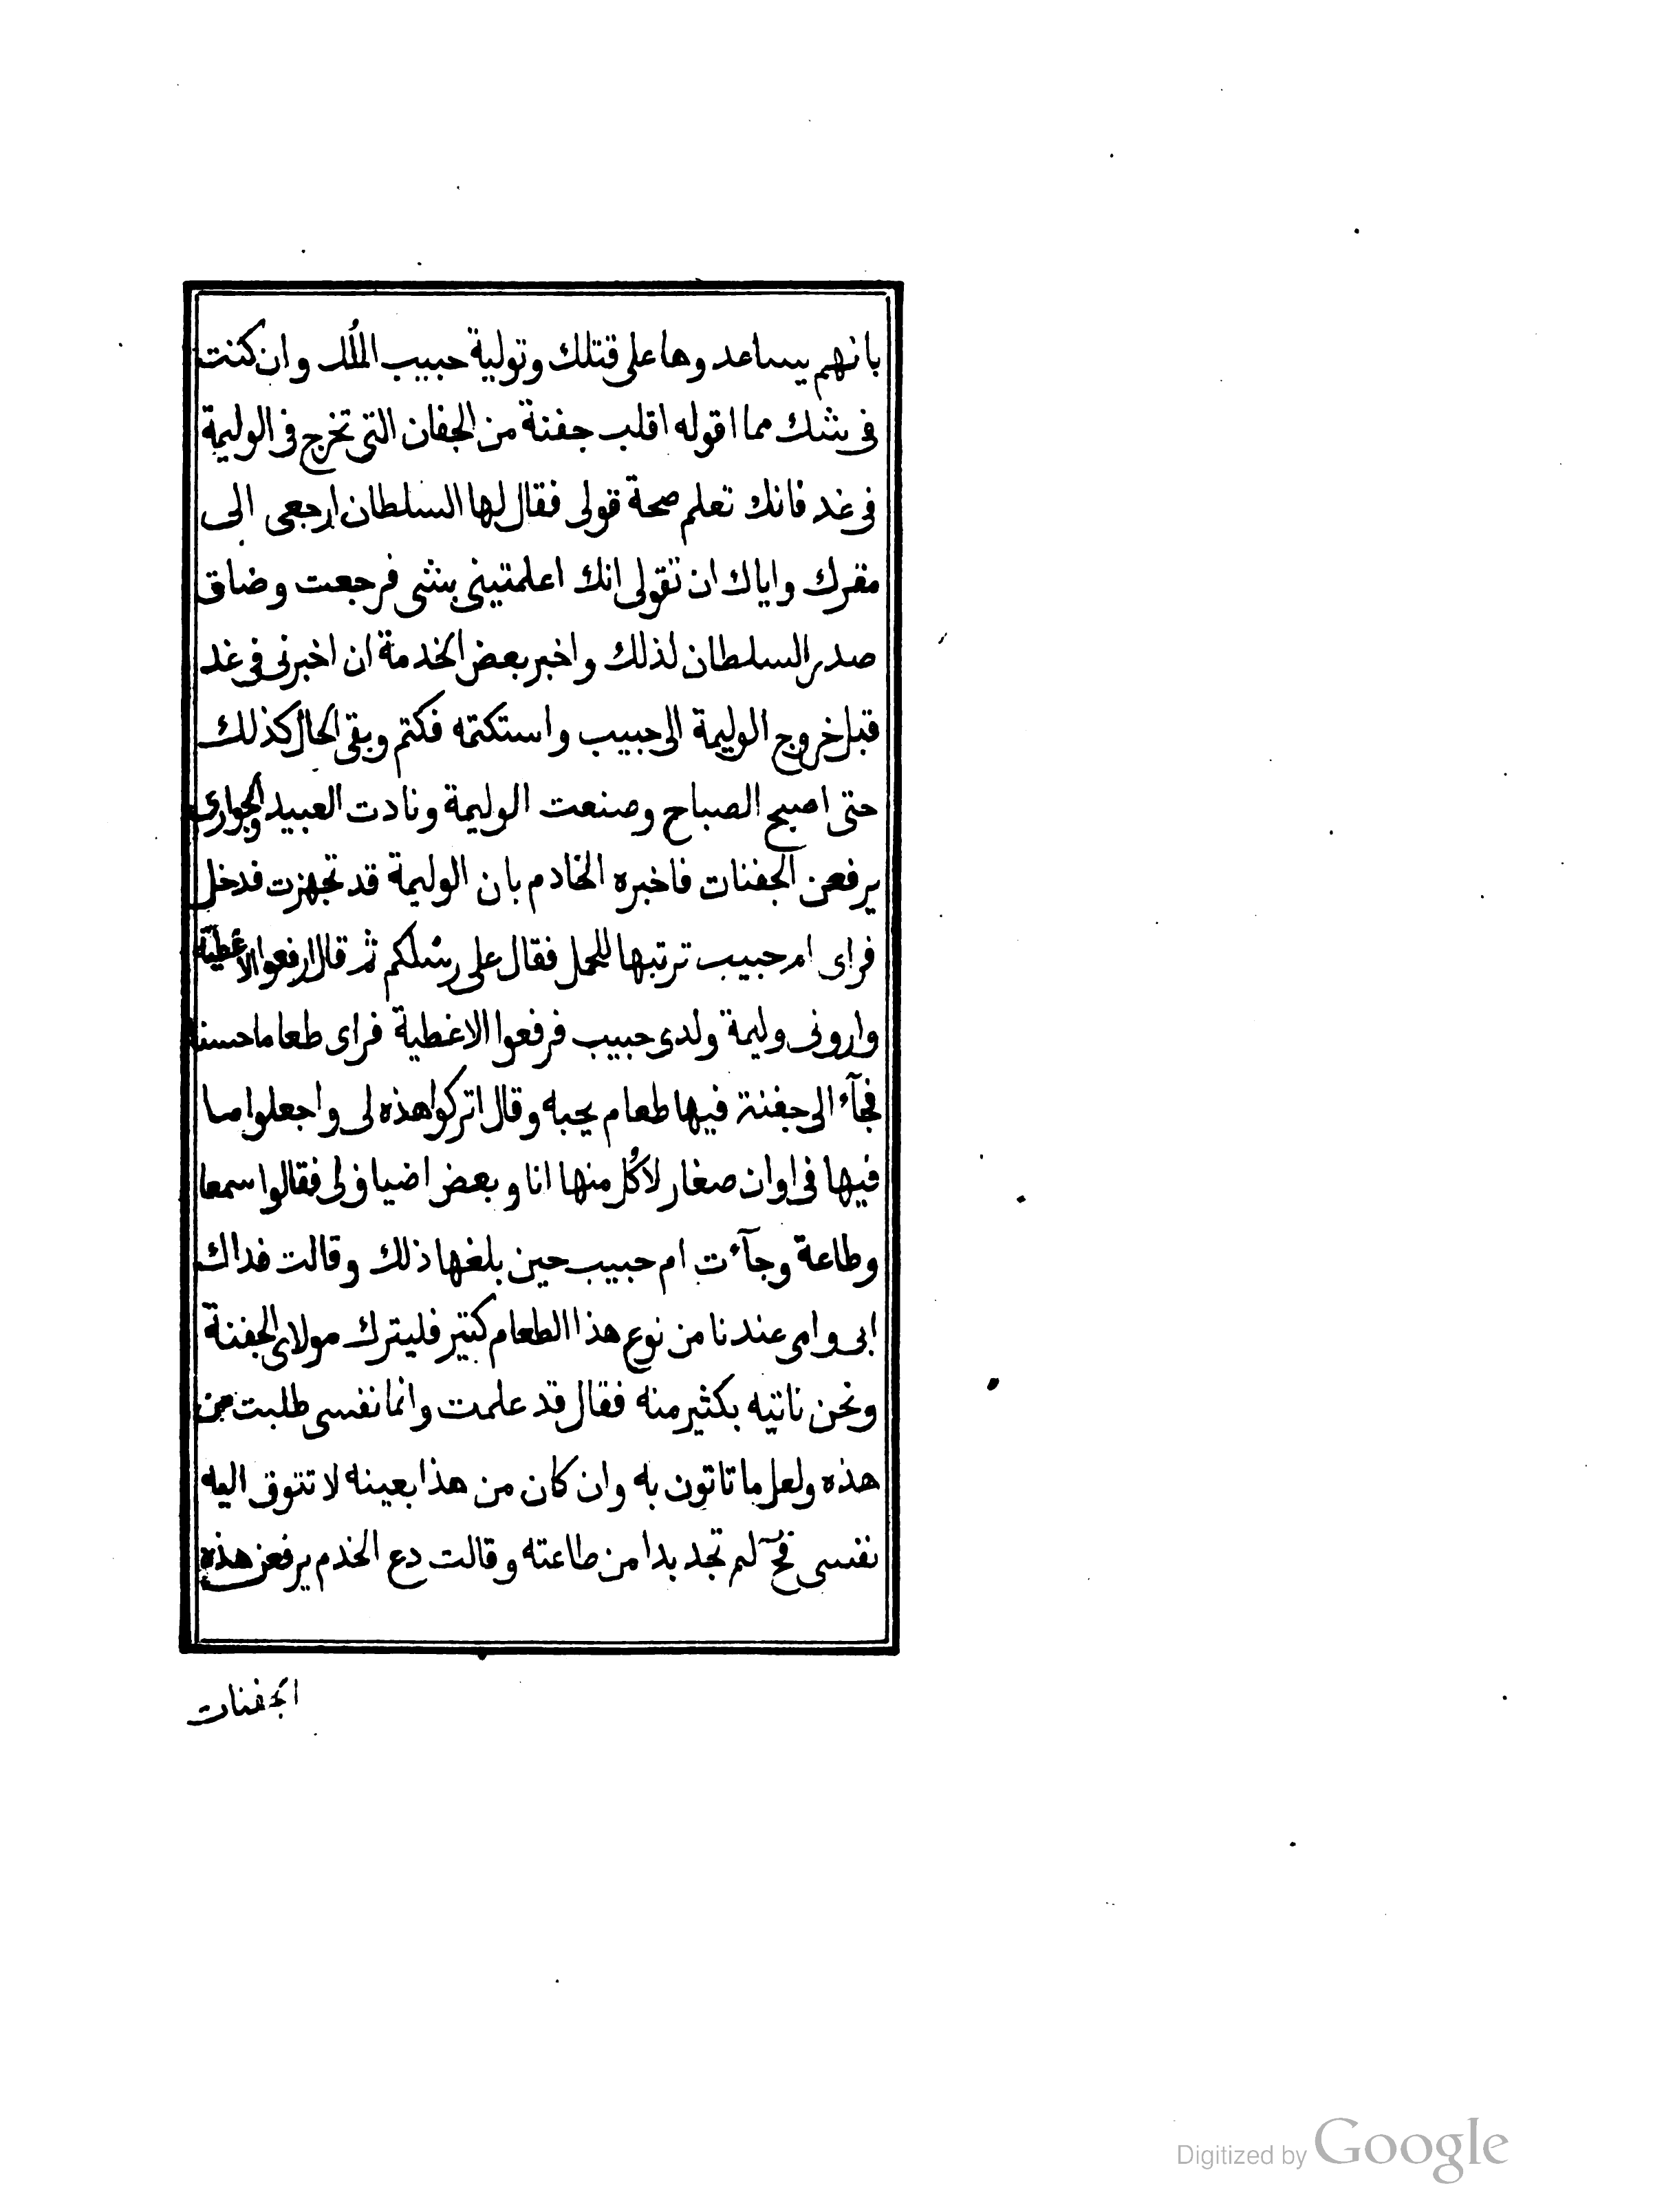 بانهم يساعدوها على قتلك وتولية حبيب المُلك وان كنت
فى شك مما اقوله اقلب جفنة من الجفان التى تخرج فى الوليمة
فى غد فانك تعلم صحة قولى فقال لها السلطان ارجعى الى
مقرك واياك ان تقولى انك اعلمتينى بشى فرجعت وضاق
صدر السلطان لذلك واخبر بعض الخدمة ان اخبرنى فى غد
قبل خروج الوليمة الى حبيب واستكتمه فكتم وبقى الحال كذلك
حتى اصبح الصباح وصنعت الوليمة ونادت العبيد والجوارى
يرفعن الجفنات فاخبره الخادم بان الوليمة قد تجهزت فدخل
فراى ام حبيب ترتبها للحمل فقال على رسلكم ثم قال ارفعوا الاغطية
وارونى وليمة ولدى حبيب فرفعوا الاغطية فراى طعاما حسنا
فجآء الى جفنة فيها طعام يحبه وقال اتركوا هذه لى واجعلوا ما
فيها فى اوان صغار لاكُل منها انا وبعض اضياف لى فقالوا سمعا
وطاعة وجآءت ام حبيب حين بلغها ذلك وقالت فداك
ابى وامى عندنا من نوع هذا الطعام كثير فليترك مولاى الجفنة
ونحن ناتيه بكثير منه فقال قد علمت وانما نفسى طلبت من
هذه ولعل ما تاتون به وان كان من هذا بعينه لا تتوق اليه
نفسى فحٓ لم تجد بدا من طاعته وقالت دع الخدم يرفعن هذه
الجفنات
Digitized by Google